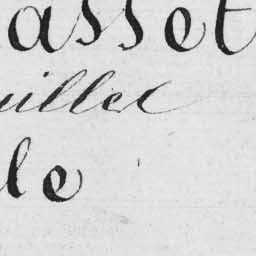 asset
uillet
le